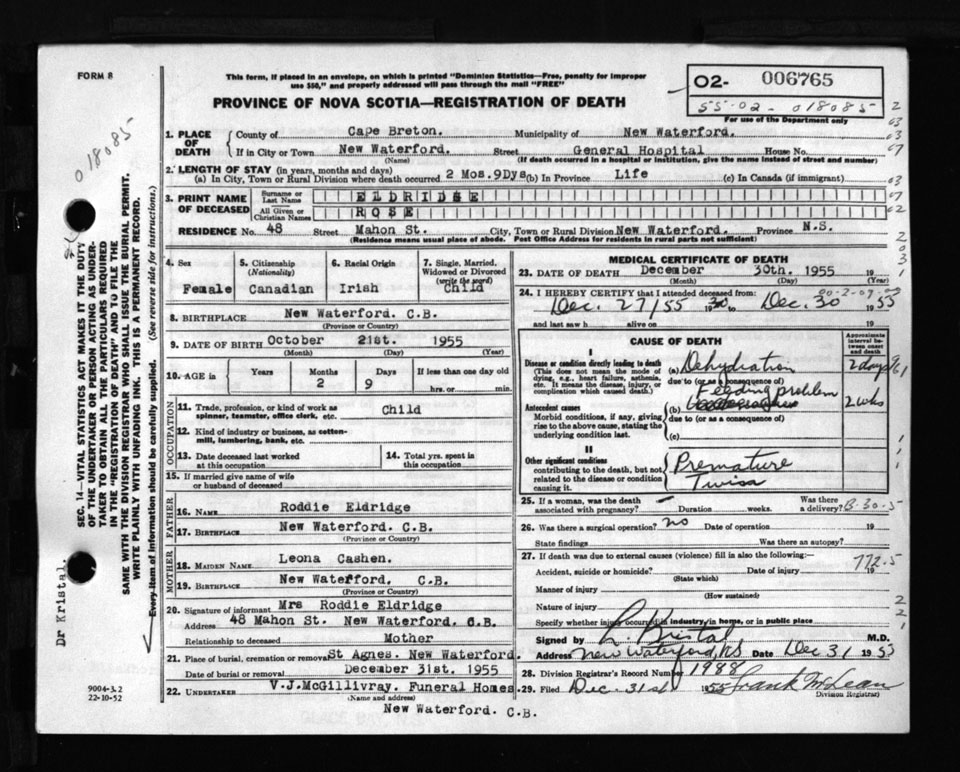 FORM 8
This form, if placed in an envelope, on which is printed "Dominion Statistics—Free, penalty for improper use $50," and properly addressed will pass through the mail "FREE"
O2- 006765
55-02-018085
For use of the Department only
PROVINCE OF NOVA SCOTIA—REGISTRATION OF DEATH
018085
1. PLACE OF DEATH
County of Cape Breton. Municipality of New Waterford.
If in City or Town New Waterford. Street General Hospital House No.
(Name) (If death occurred in a hospital or institution, give the name instead of street and number)
2. LENGTH OF STAY (in years, months and days)
(a) In City, Town or Rural Division where death occurred 2 Mos. 9Dys (b) In Province Life (c) In Canada (if immigrant)
3. PRINT NAME OF DECEASED
Surname or Last Name ELDRIDGE
All Given or Christian Names ROSE
RESIDENCE No. 48 Street Mahon St. City, Town or Rural Division New Waterford. Province N.S.
(Residence means usual place of abode. Post Office Address for residents in rural parts not sufficient)
4. Sex Female
5. Citizenship (Nationality) Canadian
6. Racial Origin Irish
7. Single, Married, Widowed or Divorced (write the word) Child
8. BIRTHPLACE New Waterford. C.B.
(Province or Country)
9. DATE OF BIRTH October 21st. 1955
(Month) (Day) (Year)
10. AGE in Years Months Days If less than one day old
2 9 hrs. or min.
OCCUPATION
11. Trade, profession, or kind of work as spinner, teamster, office clerk, etc. Child
12. Kind of industry or business, as cotton-mill, lumbering, bank, etc.
13. Date deceased last worked at this occupation
14. Total yrs. spent in this occupation
15. If married give name of wife or husband of deceased
FATHER
16. NAME Roddie Eldridge
17. BIRTHPLACE New Waterford. C.B.
(Province or Country)
MOTHER
18. MAIDEN NAME Leona Cashen.
19. BIRTHPLACE New Waterford. C.B.
(Province or Country)
20. Signature of informant Mrs Roddie Eldridge
Address 48 Mahon St. New Waterford. C.B.
Relationship to deceased Mother
21. Place of burial, cremation or removal St Agnes. New Waterford.
Date of burial or removal December 31st. 1955
22. UNDERTAKER V.J.McGillivray. Funeral Homes
(Name and address)
New Waterford. C.B.
MEDICAL CERTIFICATE OF DEATH
23. DATE OF DEATH December 30th. 1955 19
(Month) (Day) (Year)
24. I HEREBY CERTIFY that I attended deceased from:
Dec. 27/55 to Dec. 30 1955
and last saw h alive on 19
CAUSE OF DEATH
Approximate interval between onset and death
I
Disease or condition directly leading to death
(This does not mean the mode of dying, e.g., heart failure, asthenia, etc. It means the disease, injury, or complication which caused death.)
(a) Dehydration 2 days
due to (or as a consequence of)
Antecedent causes
Morbid conditions, if any, giving rise to the above cause, stating the underlying condition last.
Feeding problem
(b) 2 wks
due to (or as a consequence of)
(c)
II
Other significant conditions
contributing to the death, but not related to the disease or condition causing it.
Premature
Twins
25. If a woman, was the death associated with pregnancy? Duration weeks. Was there a delivery?
26. Was there a surgical operation? no Date of operation 19
State findings Was there an autopsy?
27. If death was due to external causes (violence) fill in also the following:—
Accident, suicide or homicide? Date of injury 19
772.5
(State which)
Manner of injury
(How sustained)
Nature of injury
Specify whether injury occurred in industry, in home, or in public place
Signed by L. Kristal M.D.
Address New Waterford, NS Date Dec 31 1955
28. Division Registrar's Record Number 1988
29. Filed Dec. 31st 1955 Frank McLean
Division Registrar
SEC. 14—VITAL STATISTICS ACT MAKES IT THE DUTY OF THE UNDERTAKER OR PERSON ACTING AS UNDERTAKER TO OBTAIN ALL THE PARTICULARS REQUIRED IN THE "REGISTRATION OF DEATH" AND TO FILE THE SAME WITH THE DIVISION REGISTRAR WHO SHALL ISSUE THE BURIAL PERMIT.
WRITE PLAINLY WITH UNFADING INK. THIS IS A PERMANENT RECORD.
Every item of information should be carefully supplied. (See reverse side for instructions.)
Dr Kristal.
9004-3.2
22-10-52